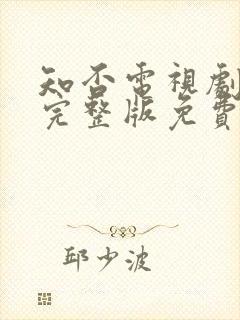 知否電視劇
完整版免費
邱少波